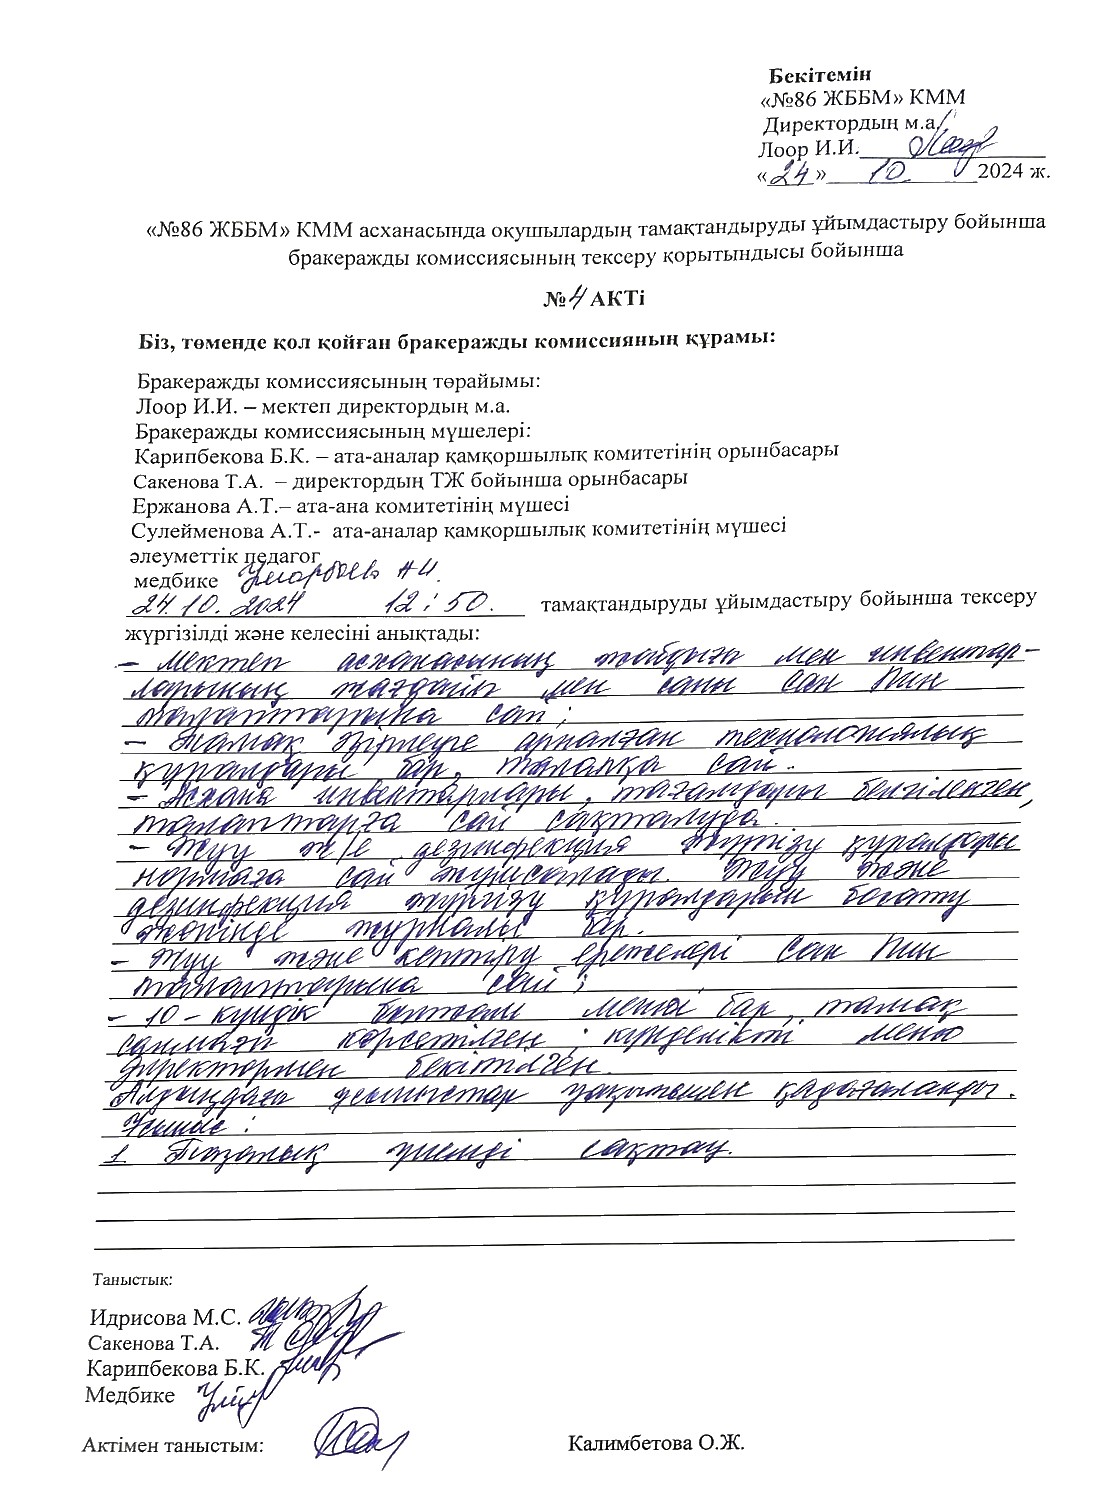 Бекітемін
«№86 ЖББМ» КММ
Директордың м.а.
Лоор И.И.
«24» 10. 2024 ж.
«№86 ЖББМ» КММ асханасында оқушылардың тамақтандыруды ұйымдастыру бойынша
бракеражды комиссиясының тексеру қорытындысы бойынша
№4 АКТі
Біз, төменде қол қойған бракеражды комиссияның құрамы:
Бракеражды комиссиясының төрайымы:
Лоор И.И. – мектеп директордың м.а.
Бракеражды комиссиясының мүшелері:
Карипбекова Б.К. – ата-аналар қамқоршылық комитетінің орынбасары
Сакенова Т.А. – директордың ТЖ бойынша орынбасары
Ержанова А.Т.– ата-ана комитетінің мүшесі
Сулейменова А.Т.- ата-аналар қамқоршылық комитетінің мүшесі
әлеуметтік педагог
медбике
24.10.2024 12:50. тамақтандыруды ұйымдастыру бойынша тексеру
жүргізілді және келесіні анықтады:
– Мектеп асханасының жабдығы мен инвентар-
ларының жағдайы мен саны Сан Пин
талаптарына сай;
– Тамақ әзірлеуге арналған технологиялық
құралдары бар, талапқа сай.
– Асхана инвентарлары, тағамдары белгіленген,
талаптарға сай сақталуда.
– Жуу ж/е дезинфекция жүргізу құралдары
нормаға сай жұмсалады. Жуу және
дезинфекция жүргізу құралдарын босату
жөнінде журналы бар.
– Жуу және кептіру ережелері Сан Пин
талаптарына сай;
– 10-күндік бектам менюі бар, тамақ
салмағы көрсетілген; күнделікті меню
директормен бекітілген.
Алдыңдағы ұсыныстар уақытымен қадағаланды.
Ұсыныс:
1. Тазалық үнемді сақтау.
Таныстык:
Идрисова М.С.
Сакенова Т.А.
Карипбекова Б.К.
Медбике
Актімен таныстым: Калимбетова О.Ж.